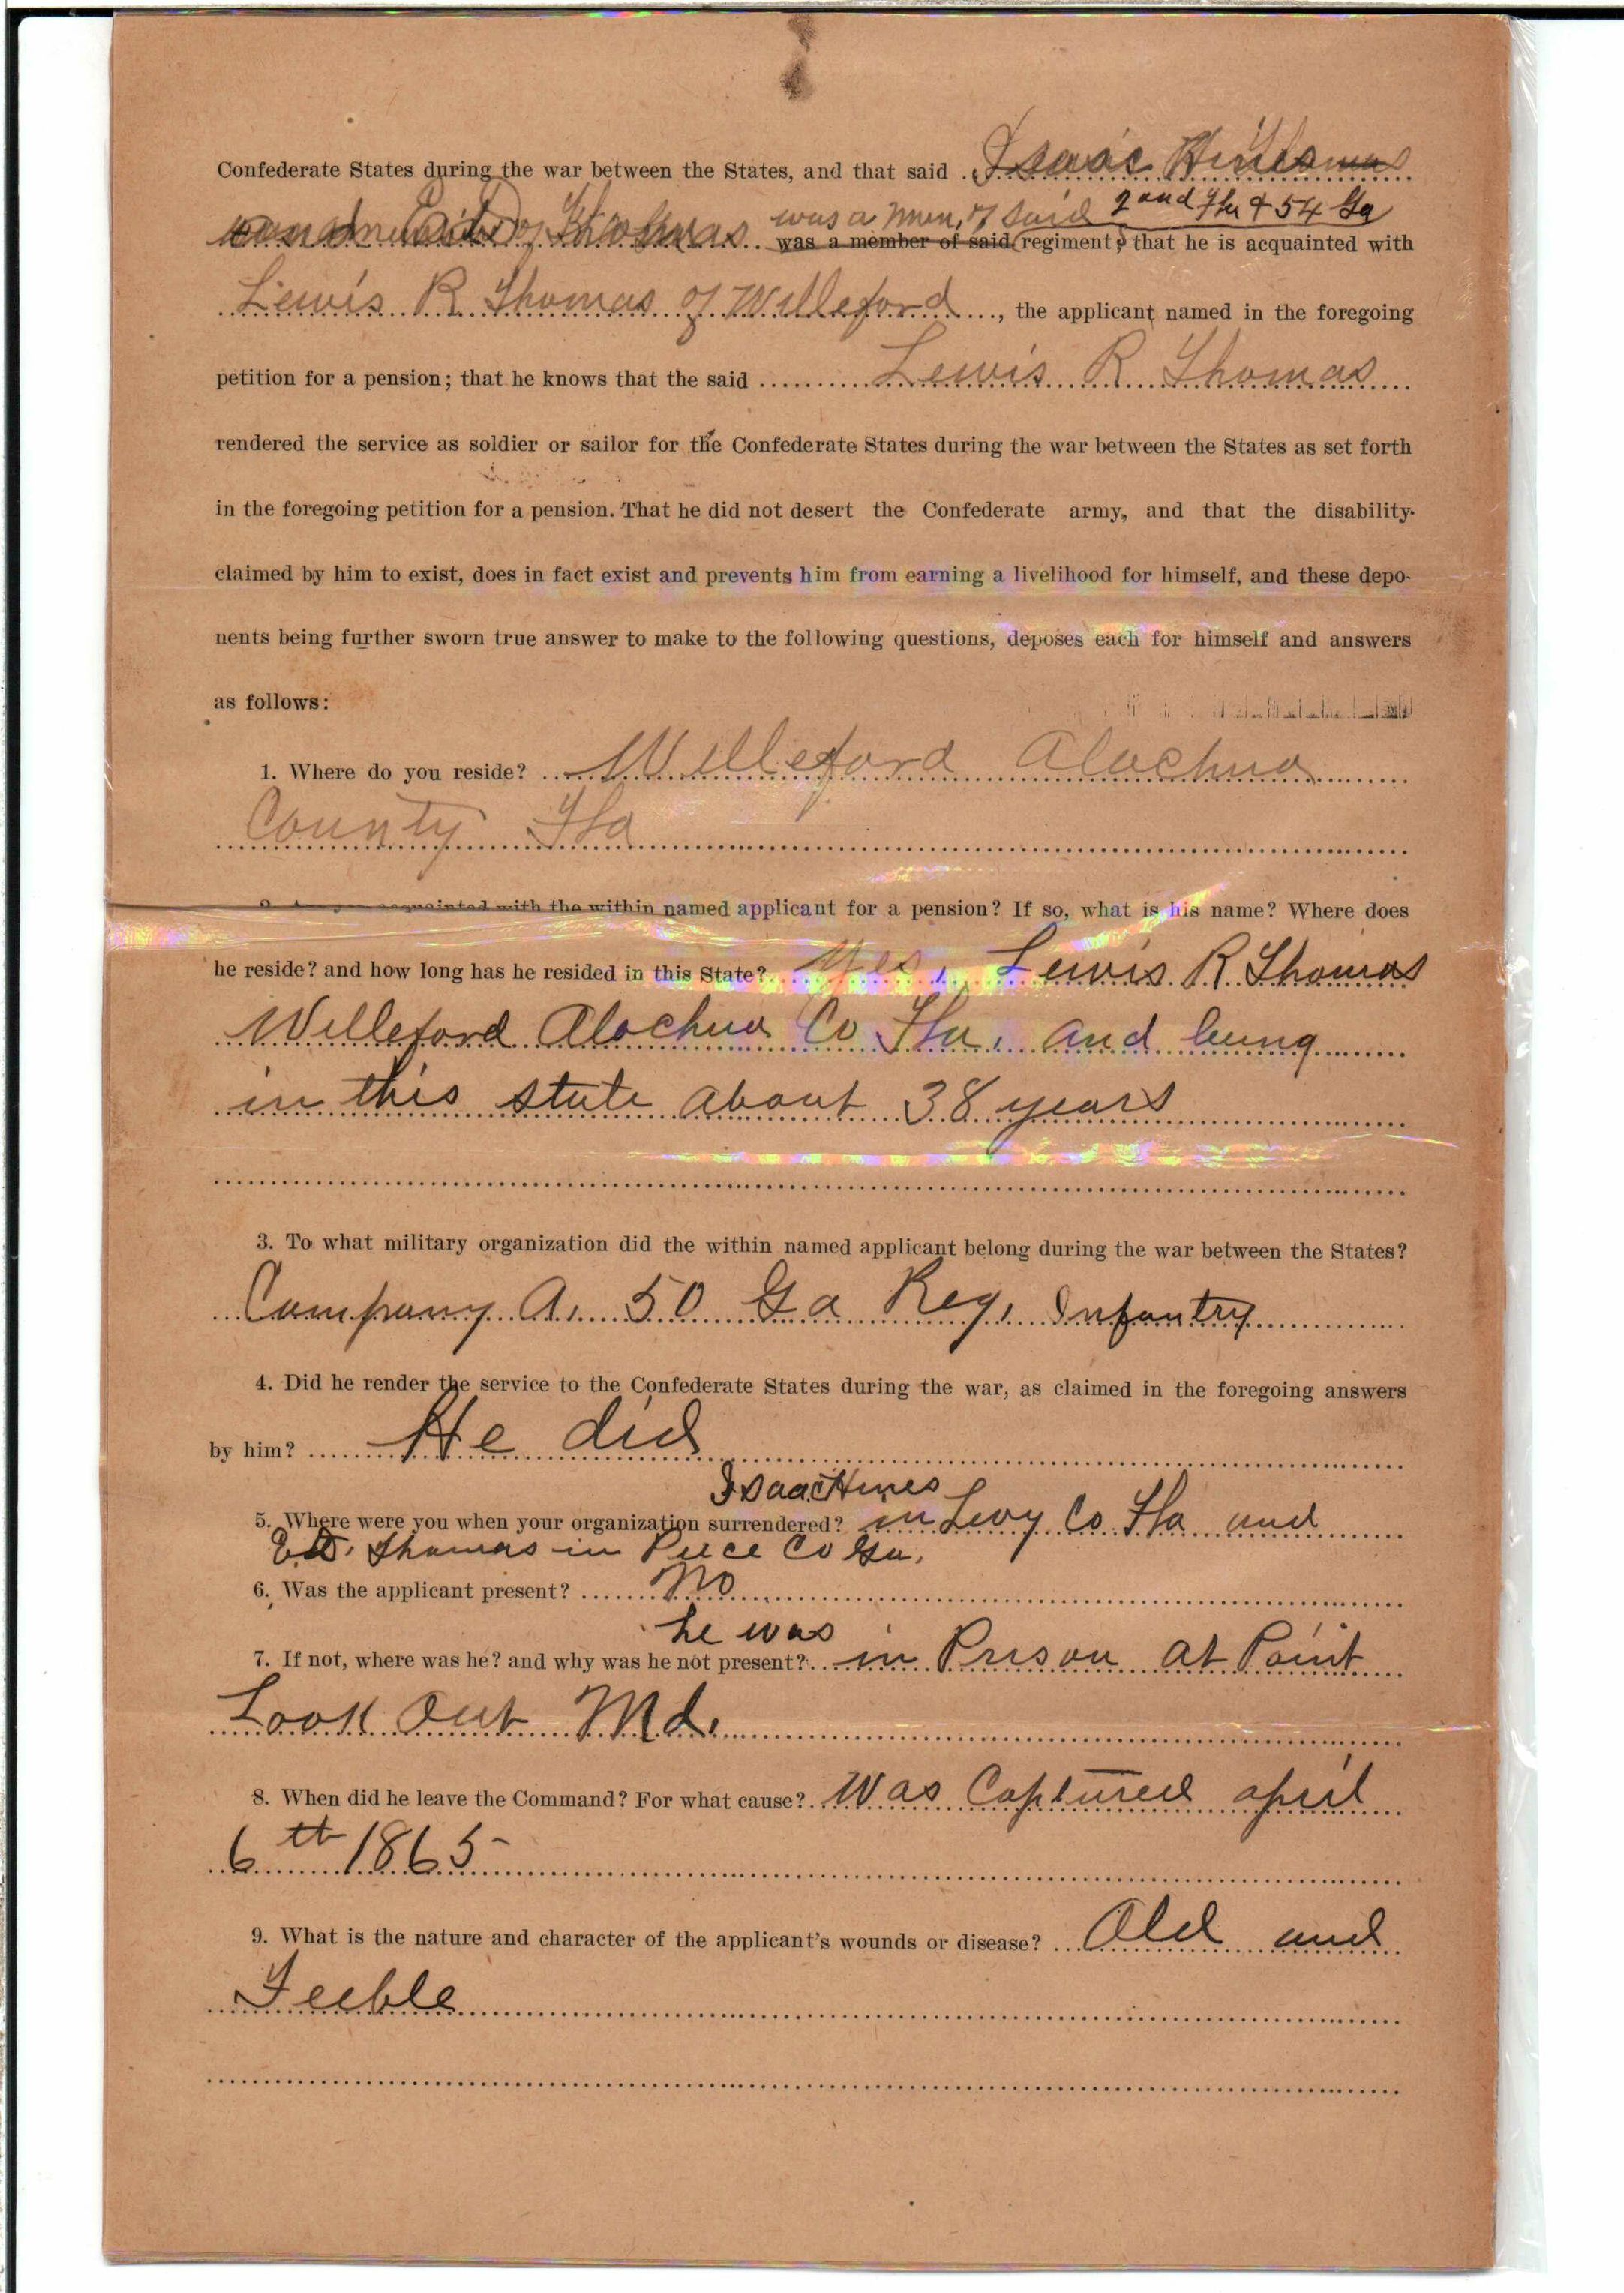 Confederate States during the war between the States, and that said Isaac Hines
and Ed Thomas was a mem, of said 2 and Fla & 54 Ga
was a member of said (regiment; that he is acquainted with
Lewis R Thomas of Willeford, the applicant named in the foregoing
petition for a pension; that he knows that the said Lewis R Thomas
rendered the service as soldier or sailor for the Confederate States during the war between the States as set forth
in the foregoing petition for a pension. That he did not desert the Confederate army, and that the disability
claimed by him to exist, does in fact exist and prevents him from earning a livelihood for himself, and these depo-
nents being further sworn true answer to make to the following questions, deposes each for himself and answers
as follows:
1. Where do you reside? Willeford Alachua
County Fla
acquainted with the within named applicant for a pension? If so, what is his name? Where does
he reside? and how long has he resided in this State? Yes, Lewis R Thomas
Willeford Alachua Co Fla, and being
in this state about 38 years
3. To what military organization did the within named applicant belong during the war between the States?
Company A. 50 Ga Reg, Infantry
4. Did he render the service to the Confederate States during the war, as claimed in the foregoing answers
by him? He did
Isaac Hines
5. Where were you when your organization surrendered? in Levy Co Fla and
Ed. Thomas in Co Ga.
6. Was the applicant present? No
he was
7. If not, where was he? and why was he not present? in Prison at Point
Look Out Md.
8. When did he leave the Command? For what cause? Was Captured april
6th 1865
9. What is the nature and character of the applicant's wounds or disease? Old and
Feeble